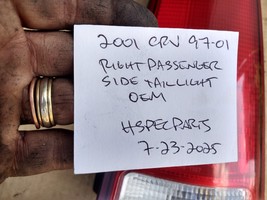 2001 CRV 97-01
RIGHT PASSENGER
SIDE TAILLIGHT
OEM
HSPECPARTS
7-23-2025